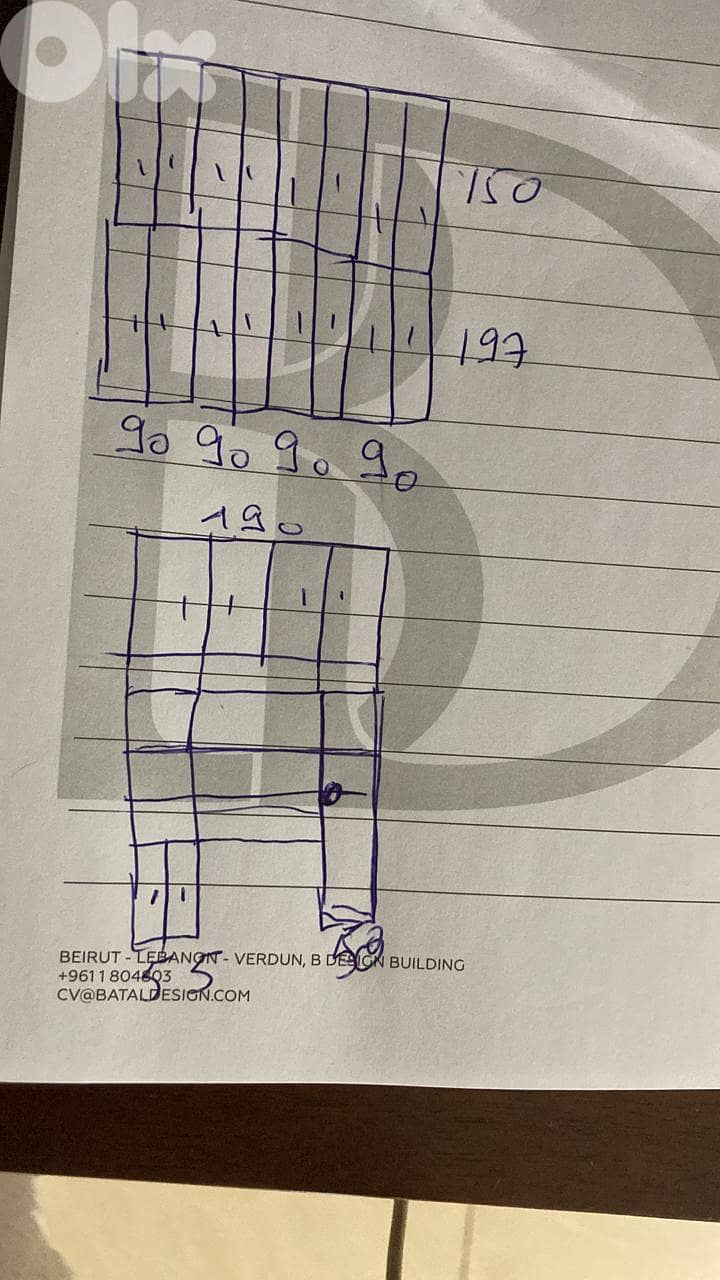 olx
150
197
90 90 90 90
190
55
BEIRUT - LEBANON - VERDUN, B DESIGN BUILDING
+961 1 804603
CV@BATALDESIGN.COM